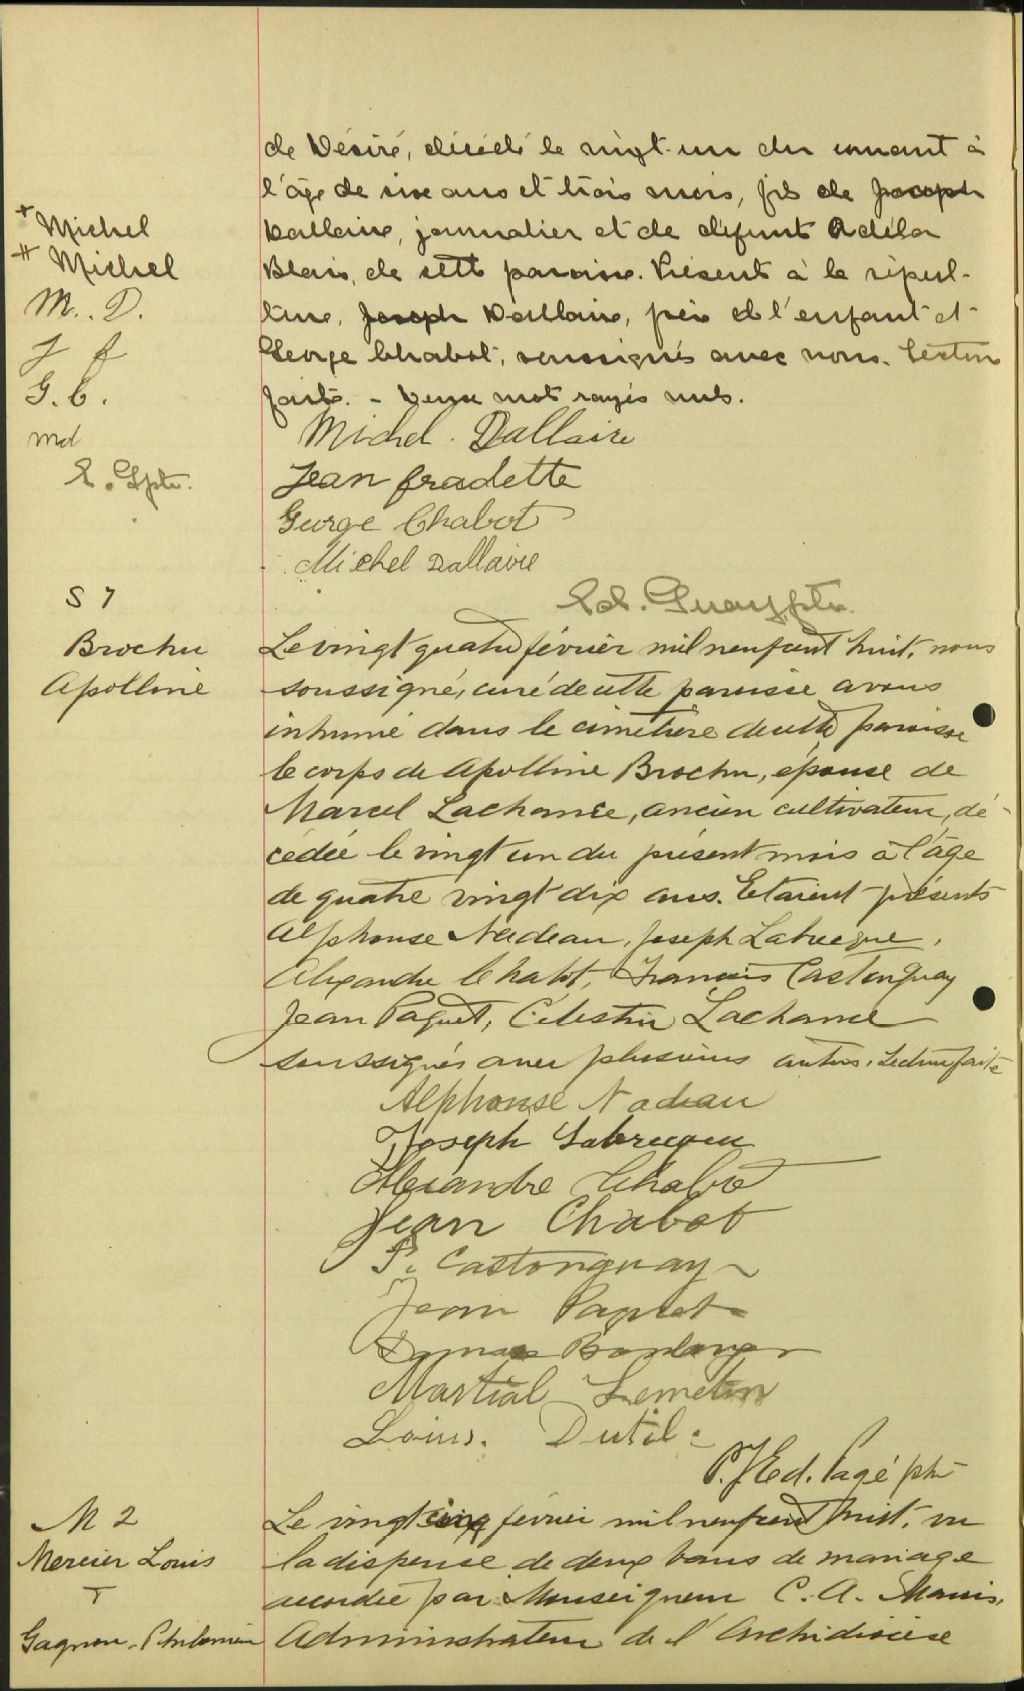 de Désiré, décédé le vingt-un du courant à
l'âge de six ans et trois mois, fils de Joseph
+ Michel
Dallaire, journalier et de défunte Adéla
# Michel
Blais, de cette paroisse. Présents à la sépul-
M. D.
ture, Joseph Dallaire, père de l'enfant et
J f
George Chabot, soussignés avec nous. Lecture
G. C.
faite. - Deux mots rayés nuls.
md
Michel Dallaire
E. G ptr.
Jean fradette
George Chabot
Michel Dallaire
Ed. Guay, ptr.
S 7
Brochu
Apolline
Le vingt quatre février mil neuf cent huit, nous
soussigné, curé de cette paroisse avons
inhumé dans le cimetière de cette paroisse
le corps de Apolline Brochu, épouse de
Marcel Lachance, ancien cultivateur, dé-
cédée le vingt un du présent mois à l'âge
de quatre vingt dix ans. Etaient présents
Alphonse Nadeau, Joseph Labrecque,
Alexandre Chabot, Francois Castonguay
Jean Paquet, Célestin Lachance
soussignés avec plusieurs autres. Lecture faite
Alphonse Nadeau
Joseph Labrecque
Alexandre Chabot
Jean Chabot
F. Castonguay
Jean Paquet
Boulanger
Martial Lemelin
Louis. Dutil
P. J Ed. Pagé ptr
M 2
Mercier Louis
T
Gagnon Philomène
Le vingt cinq février mil neuf cent huit, vu
la dispense de deux bans de mariage
accordée par Monseigneur C. A. Marois,
Administrateur de l'Archidiocèse